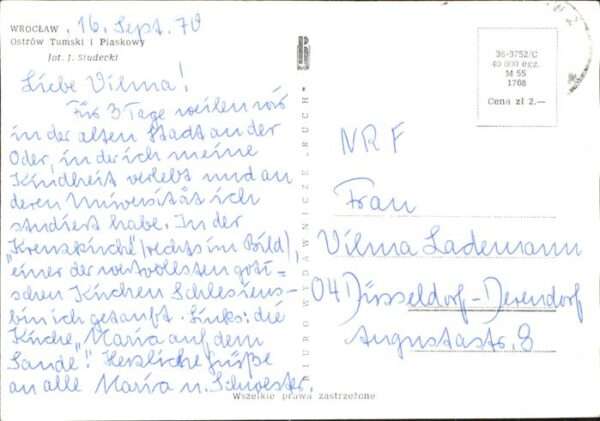 WROCŁAW
Ostrów Tumski i Piaskowy
fot. J. Siudecki
16. Sept. 70
Liebe Vilma!
Für 3 Tage weilen wir
in der alten Stadt an der
Oder, in der ich meine
Kindheit verlebt und an
deren Universität ich
studiert habe. In der
„Kreuzkirche" (rechts im Bild),
einer der wertvollsten goti=
schen Kirchen Schlesiens-
bin ich getauft. Links: die
Kirche „Maria auf dem
Sande"! Herzliche Grüße
an alle Maria u. Schwester.
BIURO WYDAWNICZE „RUCH"
36-3752/C
40 000 egz.
M 55
1768
Cena zł 2.—
NRF
Frau
Vilma Lademann
04 Düsseldorf-Derendorf
Augustastr. 8
Wszelkie prawa zastrzeżone